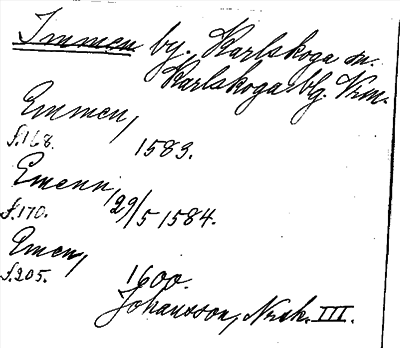 Immen by. Karlskoga sn.
Karlskoga blg. Vrm.
Emmen,
f.168. 1583.
Emenn,
f.170. 29/5 1584.
Emen,
f.205. 1600.
Johansson, Nrsk. III.